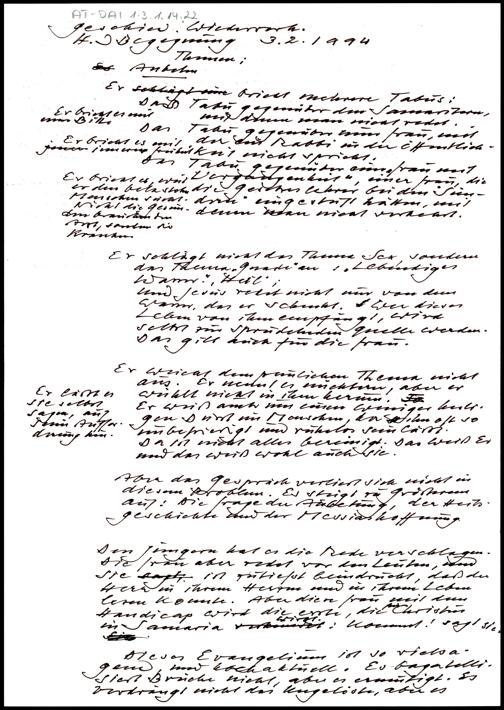 AT-DAI 1.3.1.14.22
geschied. Wiederverh.
H. Begegnung 3.2.1994
Themen:
Anbeten
Er schlägt eine bricht mehrere Tabus:
Daß Tabu gegenüber den Samaritern,
mit denen man nicht redet.
Er bricht es mit
einer Bitte
Das Tabu gegenüber einer Frau, mit
der ein Rabbi in der Öffentlich-
keit nicht spricht.
Er bricht es mit
jener inneren
Das Tabu gegenüber einer Frau mit
"Vergangenheit", einer Frau, die
die Geisteslehrer bei den "Sün-
dern" eingestuft hätten, mit
denen man nicht verkehrt.
Er bricht es, weil
er den belasteten
Menschen sucht.
Nicht die Gesun-
den brauchen den
Arzt, sondern die
Kranken
Er schlägt nicht das Thema Sex, sondern
das Thema "Gnade" an, "Lebendiges
Wasser", "Heil";
Und Jesus redet nicht nur von dem
Wasser, das er schenkt. Wer dieses
Leben von ihm empfängt, wird
selbst zur sprudelnden Quelle werden.
Das gilt auch für die Frau.
Er weicht dem peinlichen Thema nicht
aus. Er nennt es nüchtern, aber er
wühlt nicht in ihm herum.
Er weiß auch um einen weniger heili-
gen Durst im Menschen, der ihn oft so
unbefriedigt und ruhelos sein lässt.
Da ist nicht alles bereinigt. Das weiß Er
und das weiß wohl auch sie.
Er lässt es
sie selbst
sagen, auf
seine Auffor-
derung hin.
Aber das Gespräch verliert sich nicht in
diesem Problem. Es steigt zu Größerem
auf: Die Frage der Anbetung, der Heils-
geschichte und der Messiashoffnung
Den Jüngern hat es die Rede verschlagen.
Die Frau aber redet vor den Leuten, und
sie sagt, ist zutiefst beeindruckt, daß der
Herr in ihrem Herzen und in ihrem Leben
lesen konnte. Aber diese Frau mit dem
Handicap wird die erste, die Christus
in Samaria verkündet: Kommt! sagt sie.
Dieses Evangelium ist so vielsa-
gend und hochaktuell. Es bagatelli-
siert Brüche nicht, aber es ermutigt. Es
verdrängt nicht das Ungelöste, aber es